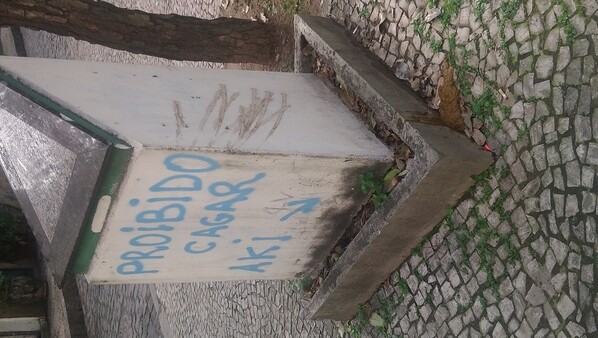 PROiBiDO
CAGAR
AKi